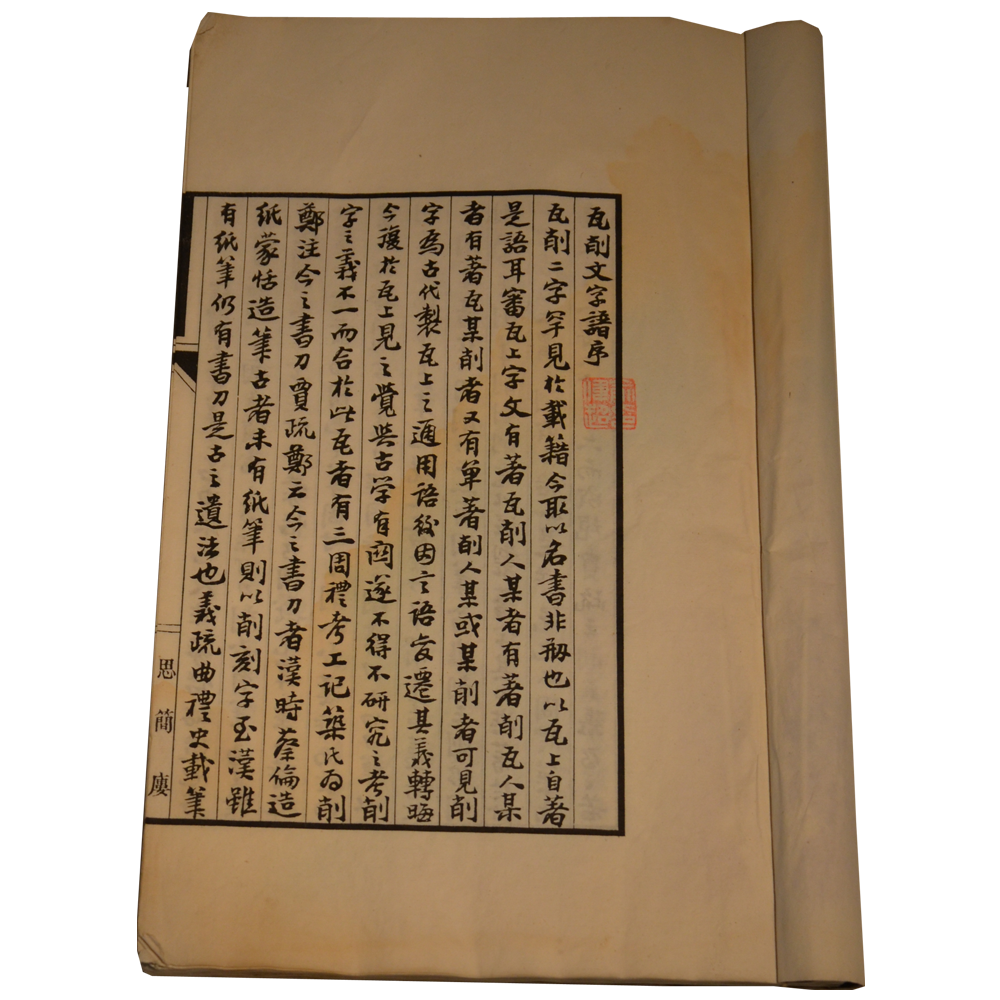 瓦削文字語序
瓦削二字罕見於載籍今取以名書非刱也以瓦上自著
是語耳審瓦上字文有著瓦削人某者有著削瓦人某
者有著瓦某削者又有單著削人某或某削者可見削
字爲古代製瓦上之通用語後因言語變遷其義轉晦
今復於瓦上見之覺與古学有関遂不得不研究之考削
字之義不一而合於此瓦者有三周禮考工記築氏为削
鄭注今之書刀賈疏鄭云今之書刀者漢時蔡倫造
紙蒙恬造筆古者未有紙筆則以削刻字至漢雖
有紙筆仍有書刀是古之遺法也義疏曲禮史載筆
思簡廔